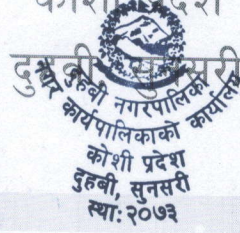 कोशी प्रदेश
दुहबी, सुनसरी
दुहबी नगरपालिका
नगर कार्यपालिकाको कार्यालय
कोशी प्रदेश
दुहबी, सुनसरी
स्था: २०७३